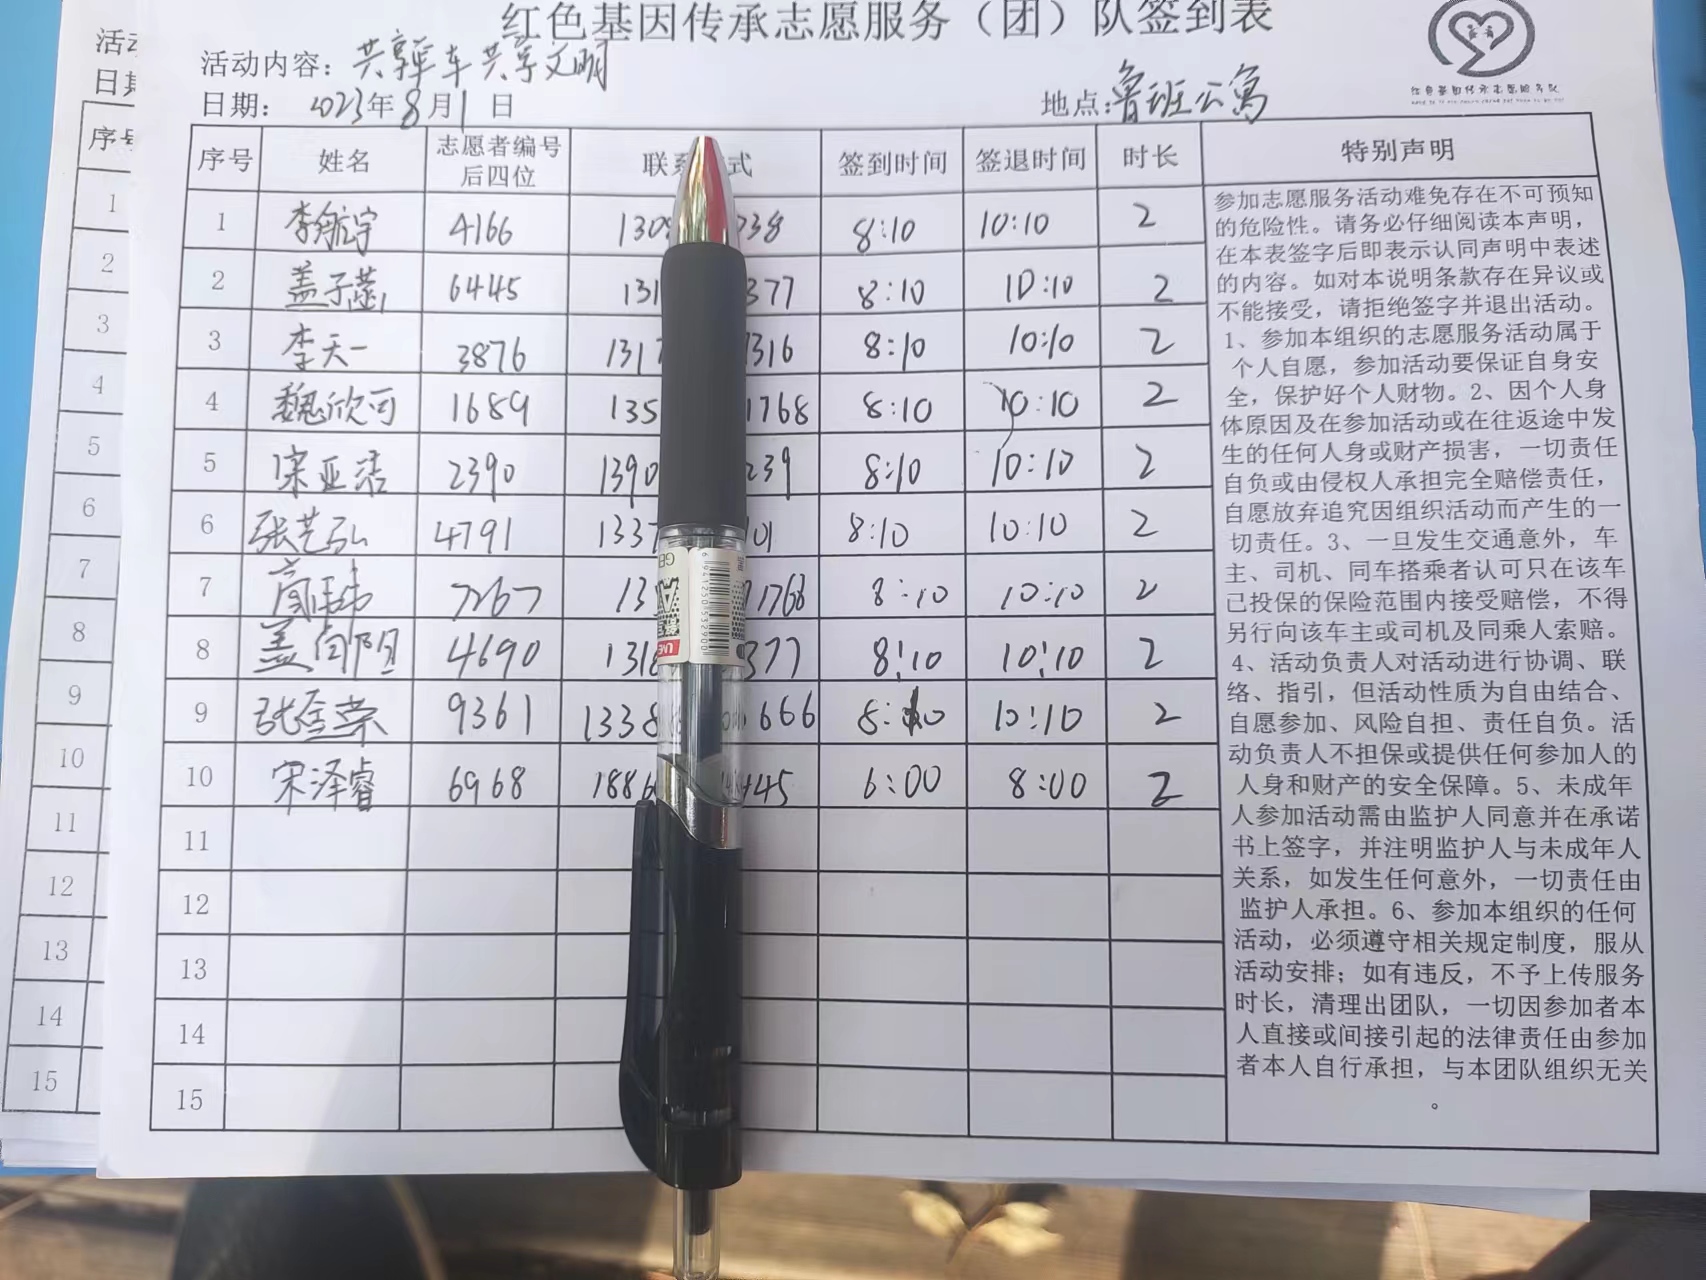 红色基因传承志愿服务（团）队签到表
活动内容：共享单车共享文明
日期：2023年8月1日 地点：鲁班公寓
序号 姓名 志愿者编号后四位 联系 式 签到时间 签退时间 时长 特别声明
1 李航宇 4166 130 738 8:10 10:10 2
2 盖子 6445 131 377 8:10 10:10 2
3 李天一 3876 1317 7316 8:10 10:10 2
4 魏欣可 1689 135 1768 8:10 10:10 2
5 宋亚洁 2390 1390 239 8:10 10:10 2
6 张艺弘 4791 1337 101 8:10 10:10 2
7 7267 13 1768 8:10 10:10 2
8 盖向阳 4690 1318 377 8:10 10:10 2
9 张金荣 9361 1338 666 8:10 10:10 2
10 宋泽睿 6968 1886 445 6:00 8:00 2
11
12
13
14
15
参加志愿服务活动难免存在不可预知
的危险性。请务必仔细阅读本声明，
在本表签字后即表示认同声明中表述
的内容。如对本说明条款存在异议或
不能接受，请拒绝签字并退出活动。
1、参加本组织的志愿服务活动属于
个人自愿，参加活动要保证自身安
全，保护好个人财物。2、因个人身
体原因及在参加活动或在往返途中发
生的任何人身或财产损害，一切责任
自负或由侵权人承担完全赔偿责任，
自愿放弃追究因组织活动而产生的一
切责任。3、一旦发生交通意外，车
主、司机、同车搭乘者认可只在该车
已投保的保险范围内接受赔偿，不得
另行向该车主或司机及同乘人索赔。
4、活动负责人对活动进行协调、联
络、指引，但活动性质为自由结合、
自愿参加、风险自担、责任自负。活
动负责人不担保或提供任何参加人的
人身和财产的安全保障。5、未成年
人参加活动需由监护人同意并在承诺
书上签字，并注明监护人与未成年人
关系，如发生任何意外，一切责任由
监护人承担。6、参加本组织的任何
活动，必须遵守相关规定制度，服从
活动安排；如有违反，不予上传服务
时长，清理出团队，一切因参加者本
人直接或间接引起的法律责任由参加
者本人自行承担，与本团队组织无关
。
活
日
序号
1
2
3
4
5
6
7
8
9
10
11
12
13
14
15